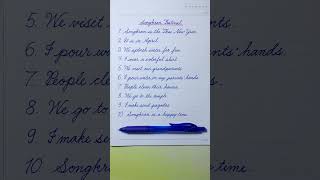 Songkran Festival
1. Songkran is the Thai New Year.
2. It is in April.
3. We splash water for fun.
4. I wear a colorful shirt.
5. We visit our grandparents.
6. I pour water on my parents' hands.
7. People clean their houses.
8. We go to the temple.
9. I make sand pagodas.
10. Songkran is a happy time.
5. We viset
6. I pour
parents' hands.
7. People
8. We go to
9. I make
10 Songkran
time.